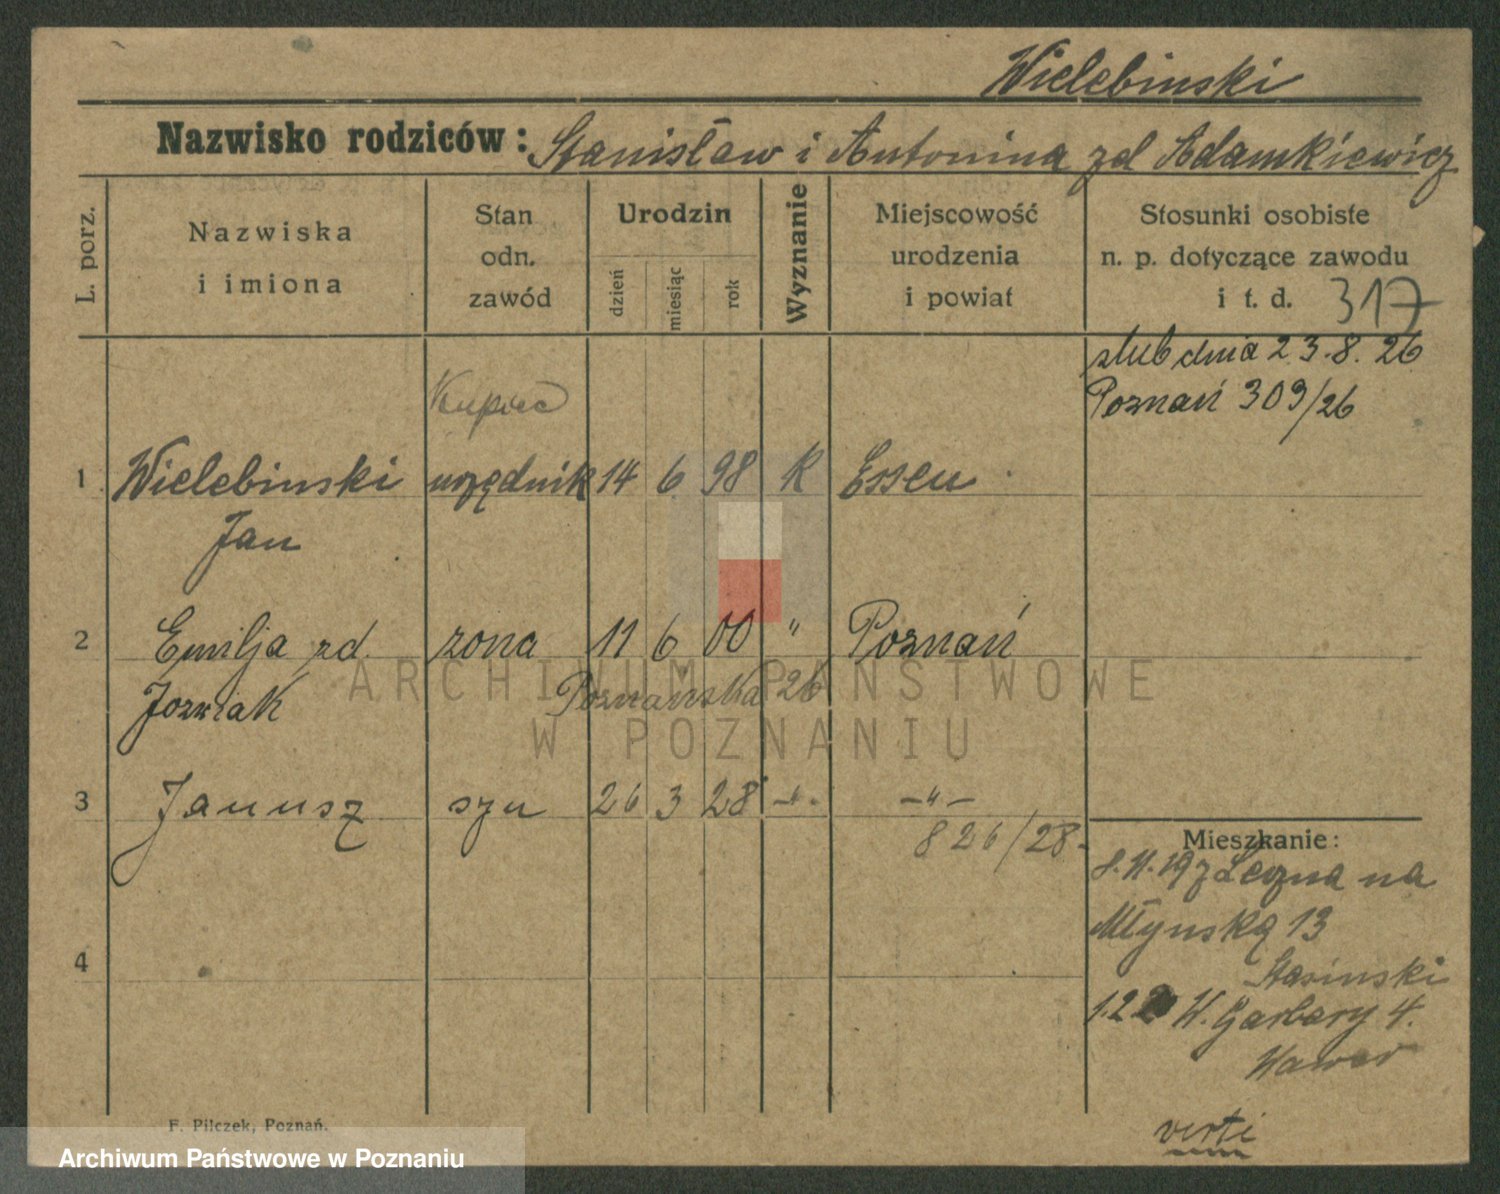 Wielebinski
Nazwisko rodziców: Stanisław i Antonina zd Adamkiewicz
L. porz.
Nazwiska
i imiona
Stan
odn.
zawód
Urodzin
dzień
miesiąc
rok
Wyznanie
Miejscowość
urodzenia
i powiat
Stosunki osobiste
n. p. dotyczące zawodu
i t. d. 317
ślub dnia 23.8.26
Poznań 309/26
Kupiec
1 Wielebinski urzędnik 14 6 98 K Essen
Jan
2 Emilja zd. żona 11 6 00 " Poznań
Jozwiak Poznańska 26
3 Janusz syn 26 3 28 -"- -"-
826/28-
Mieszkanie:
z Łezna na
Młyńską 13
Stasinski
W. Garbary 4.
Wawer
4
verte
F. Pilczek, Poznań.
ARCHIWUM PAŃSTWOWE
W POZNANIU
Archiwum Państwowe w Poznaniu